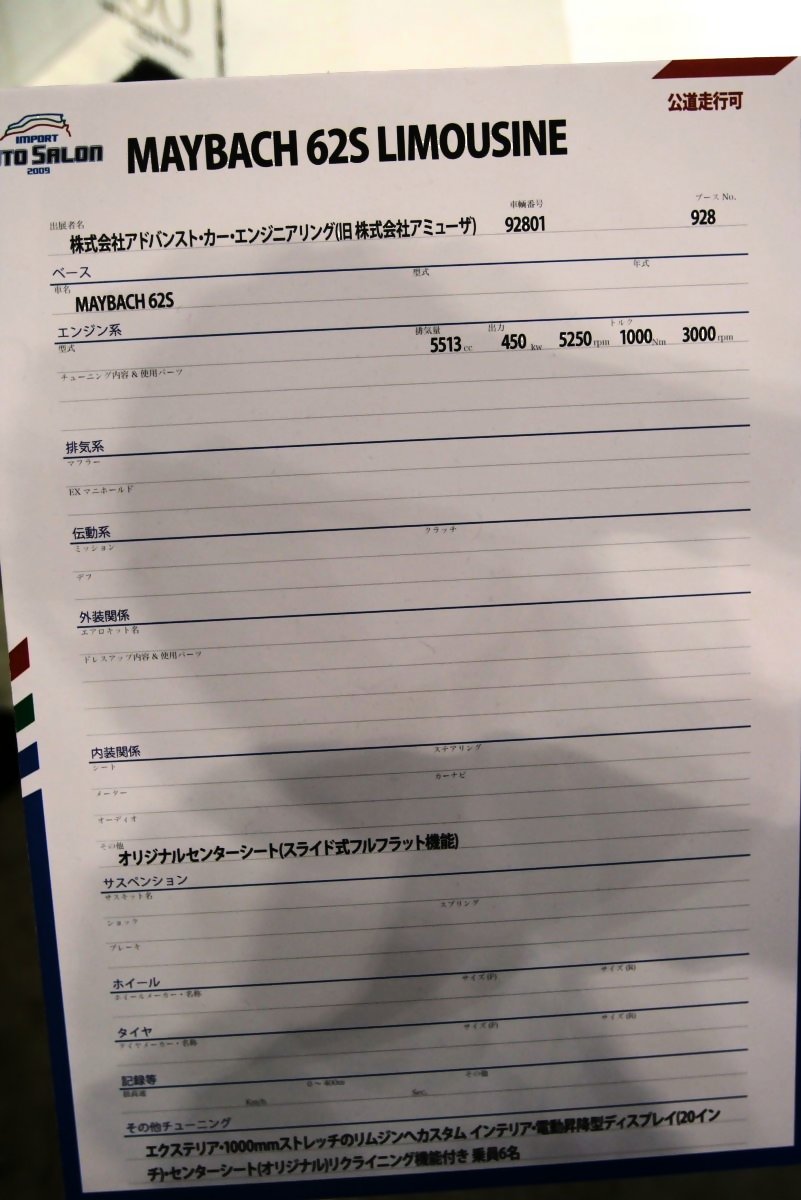 公道走行可
IMPORT
TO SALON
2009
MAYBACH 62S LIMOUSINE
出展者名 車輌番号 ブース No.
株式会社アドバンスト・カー・エンジニアリング(旧 株式会社アミューザ) 92801 928
ベース 型式 年式
車名
MAYBACH 62S
エンジン系 排気量 出力 トルク
型式 5513 cc 450 kw 5250 rpm 1000 Nm 3000 rpm
チューニング内容 & 使用パーツ
排気系
マフラー
EX マニホールド
伝動系 クラッチ
ミッション
デフ
外装関係
エアロキット名
ドレスアップ内容 & 使用パーツ
内装関係 ステアリング
シート
カーナビ
メーター
オーディオ
その他
オリジナルセンターシート(スライド式フルフラット機能)
サスペンション
サスキット名 スプリング
ショック
ブレーキ
ホイール サイズ(F) サイズ(R)
ホイールメーカー・名称
タイヤ サイズ(F) サイズ(R)
タイヤメーカー・名称
記録等 0～400m その他
最高速 Km/h Sec.
その他チューニング
エクステリア・1000mmストレッチのリムジンへカスタム インテリア・電動昇降型ディスプレイ(20イン
チ)・センターシート(オリジナル)リクライニング機能付き 乗員6名